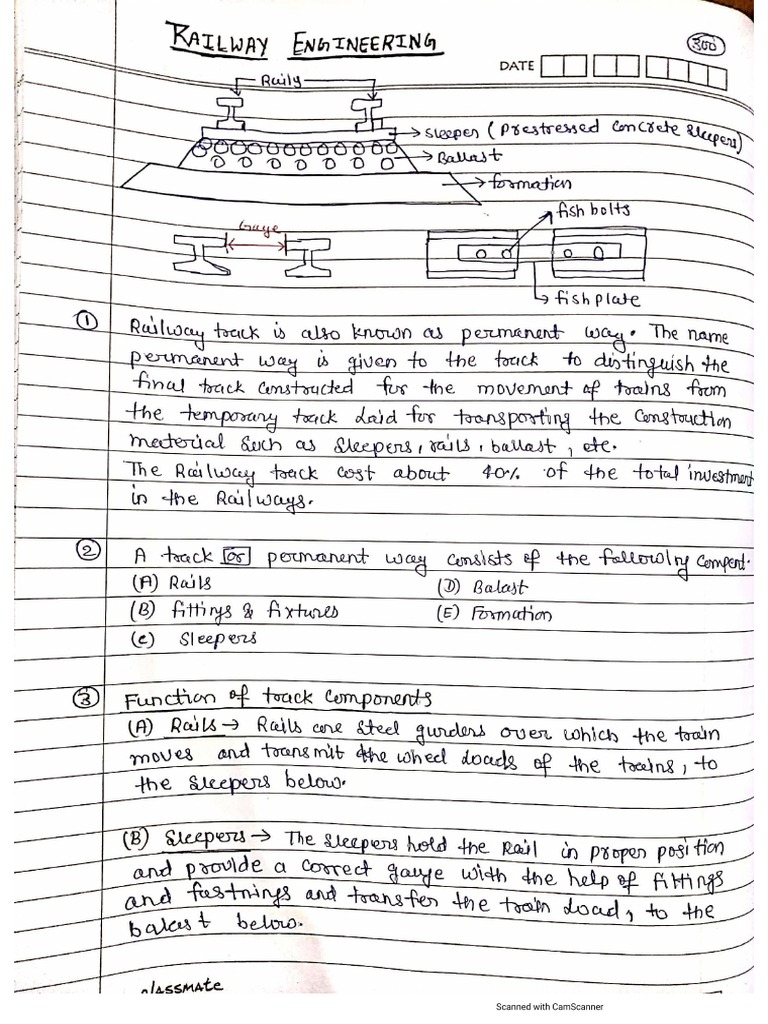 RAILWAY ENGINEERING
300
DATE
Raily
Sleeper (Prestressed Concrete Sleepers)
Ballast
formation
Gauge
fish bolts
fishplate
① Railway track is also known as permanent way. The name
permanent way is given to the track to distinguish the
final track constructed for the movement of trains from
the temporary track laid for transporting the construction
material such as sleepers, rails, ballast, etc.
The Railway track cost about 40% of the total investment
in the Railways.
② A track or permanent way consists of the following compent.
(A) Rails (D) Balast
(B) fittings & fixtures (E) Formation
(c) Sleepers
③ Function of track components
(A) Rails → Rails are steel gurders over which the train
moves and transmit the wheel loads of the trains, to
the sleepers below.
(B) Sleepers → The sleepers hold the Rail in proper position
and provide a correct gauge with the help of fittings
and fastnings and transfer the train load, to the
balast below.
classmate
Scanned with CamScanner